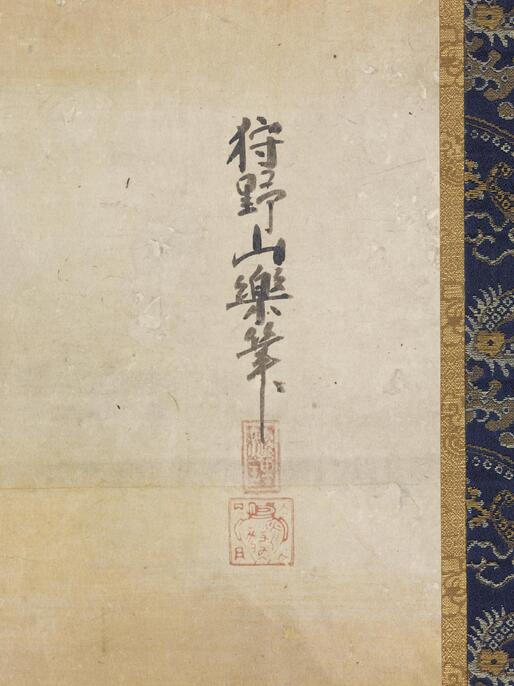 狩野山樂筆